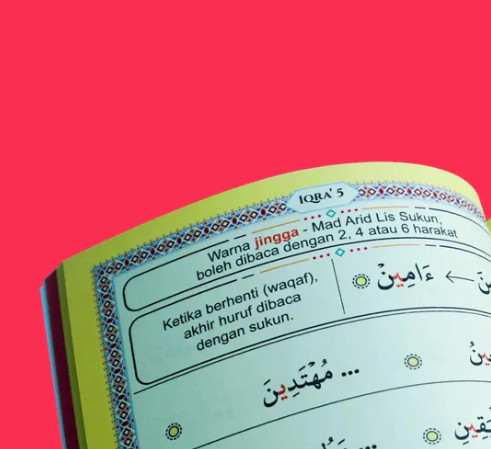 IQRA' 5
Warna jingga - Mad Arid Lis Sukun,
boleh dibaca dengan 2, 4 atau 6 harakat
Ketika berhenti (waqaf),
akhir huruf dibaca
dengan sukun.
← ءَامِينْ
... مُهْتَدِينَ